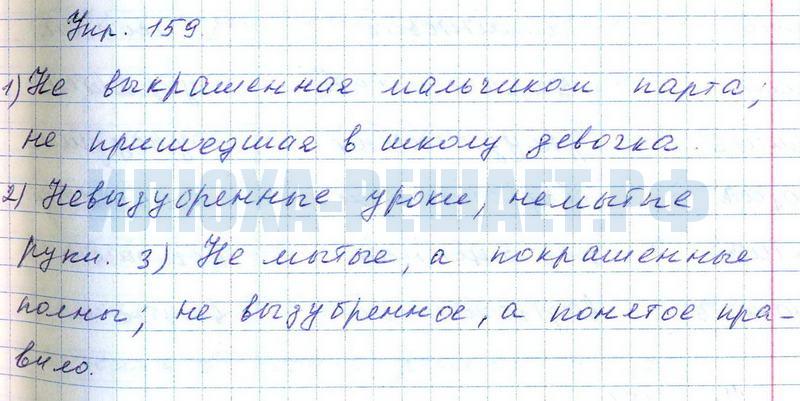 Упр. 159.
1) Не выкрашенная мальчиком парта;
не пришедшая в школу девочка.
2) Невызубренные уроки, немытые
руки. 3) Не мытые, а покрашенные
полны; не вызубренное, а понятое пра-
вило.
ИЛЮХА-РЕШАЕТ.РФ